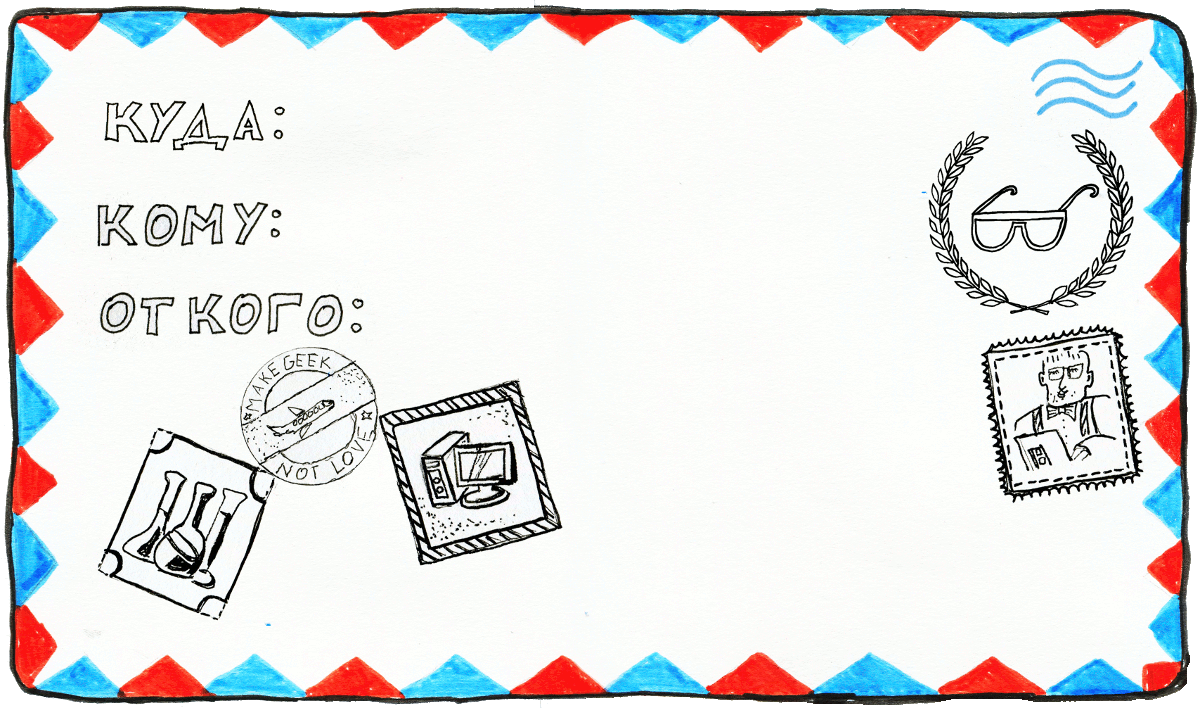 КУДА:
КОМУ:
ОТ КОГО:
MAKE GEEK
NOT LOVE